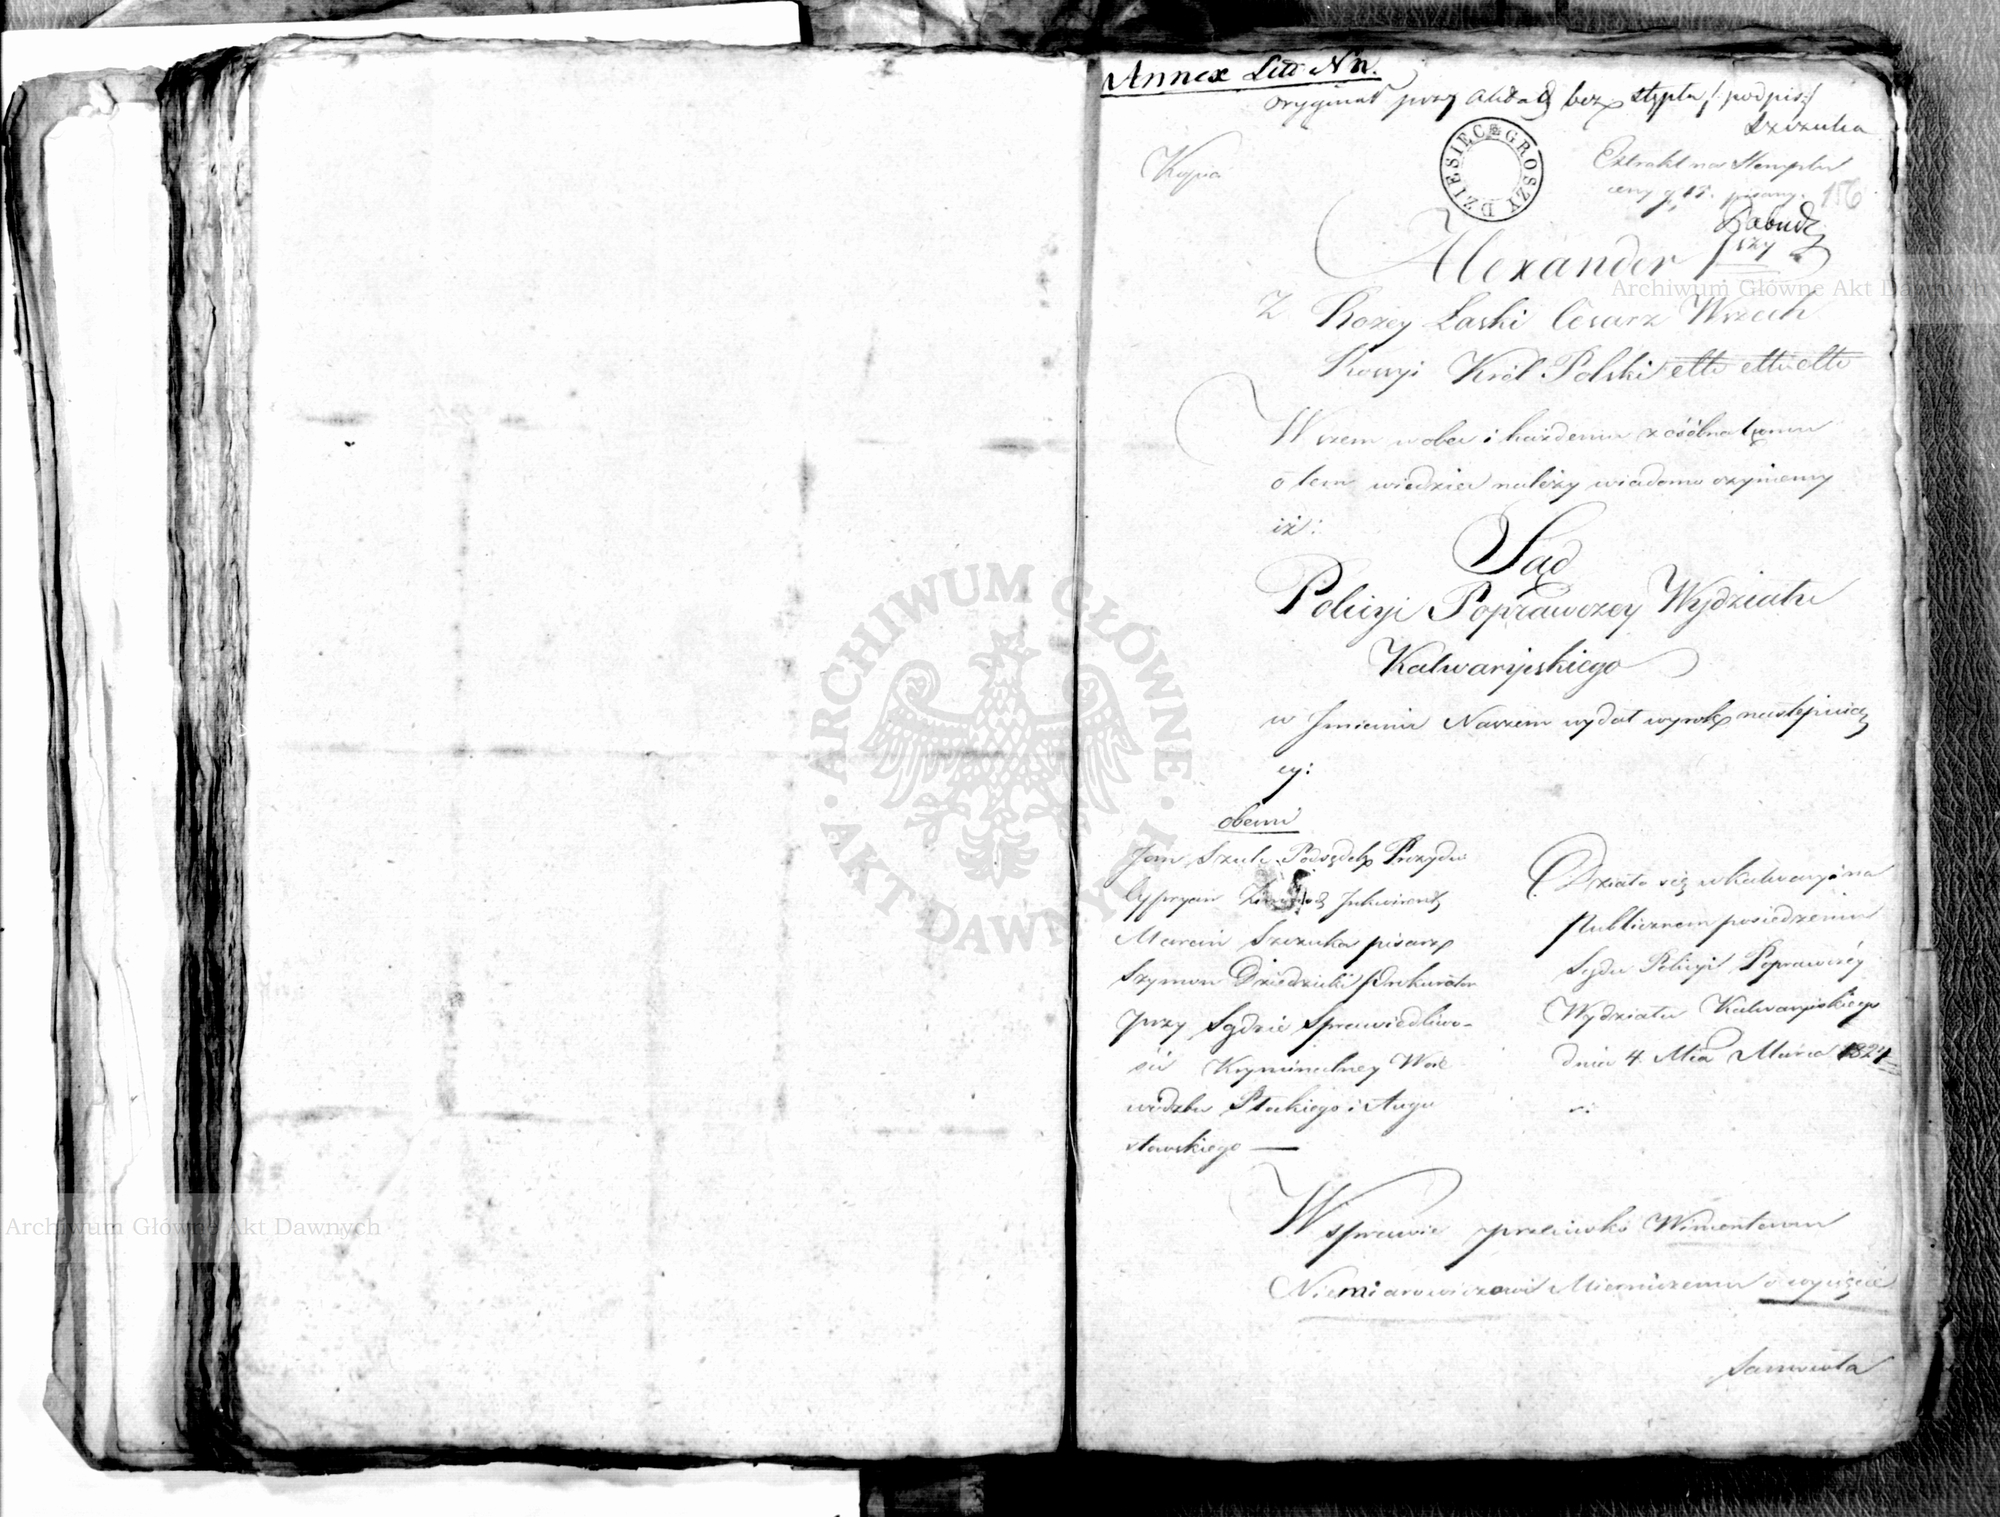 Annex Litt Nn.
oryginał przy aktach bez stępla /:podpis:/
Szczuka
Kopia
DZIESIĘC GROSZY
Extrakt na Stemplu
ceny g. 15. pisany.
156
Alexander
Z Bożey Łaski Cesarz Wszech
Rossyi Król Polski ettc ettc ettc
Wszem wobec i każdemu zosóbna komu
o tem wiedzieć należy wiadomo czyniemy
iż:
Sąd
Policyi Poprawczey Wydziału
Kalwaryiskiego
w Jmieniu Naszem wydał wyrok następuią
cy:
obecni
Jan Szulc Podsędek Prezydu:
Cypryan Inkwirent
Marcin Szczuka pisarz
Szymon Dziedzicki Prokurator
przy Sądzie Sprawiedliwo-
ści Kryminalney Woie
wództw Płockiego i Augu
stowskiego —
Działo się w Kalwaryi na
Publicznem posiedzeniu
Sądu Policyi Poprawczéy
Wydziału Kalwaryiskiego
dnia 4. Mca Marca 1824
r:
W sprawie przeciwko Wincentemu
Niemiarowiczowi Mierniczemu o wycięcie
Samuela
ARCHIWUM GŁÓWNE AKT DAWNYCH
Archiwum Główne Akt Dawnych
Archiwum Główne Akt Dawnych